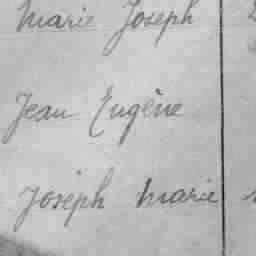 Marie Joseph
Jean Eugène
Joseph Marie